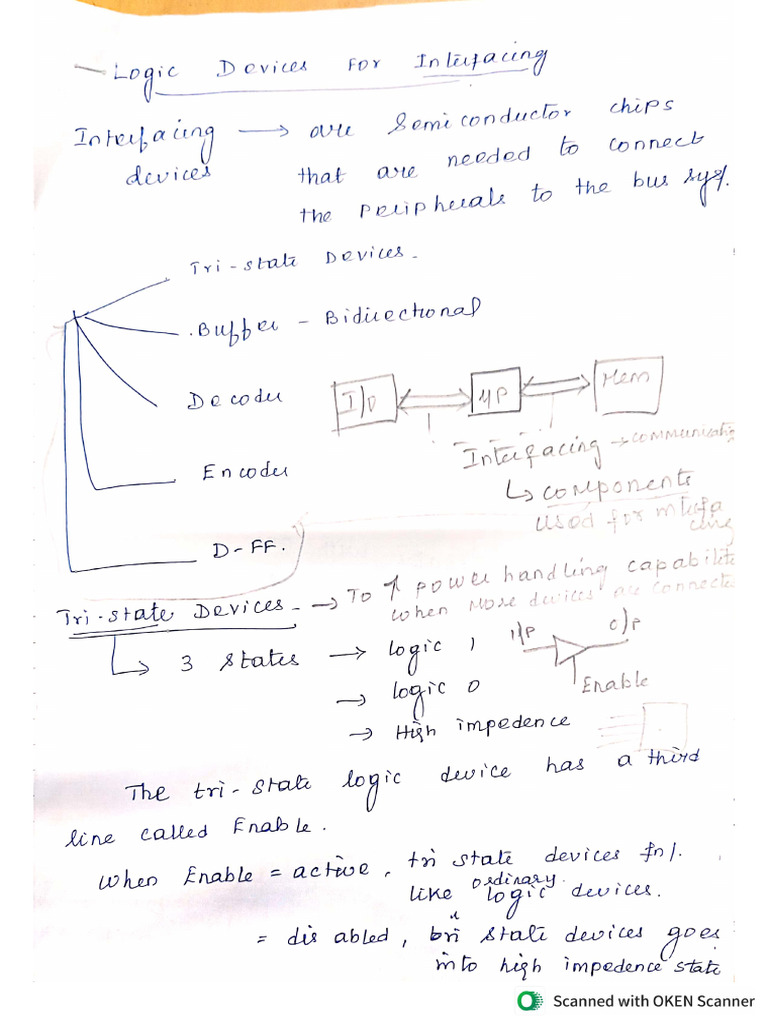 — Logic Devices For Interfacing
Interfacing devices → are Semiconductor chips
that are needed to connect
the peripherals to the bus sys/.
Tri-state Devices.
.Buffer - Bidirectional
Decoder
I/O
μP
Mem
Interfacing → communicatio
↳ components
used for interfa
cing
Encoder
D-FF.
Tri-state Devices - → To ↑ power handling capabilitie
when more devices are connecte
↳ 3 states → logic 1
→ logic 0
→ High impedence
I/P
O/P
Enable
The tri-state logic device has a third
line called Enable.
When Enable = active, tri state devices fn/.
like ordinary logic devices.
= disabled, tri state devices goes
into high impedence state
Scanned with OKEN Scanner